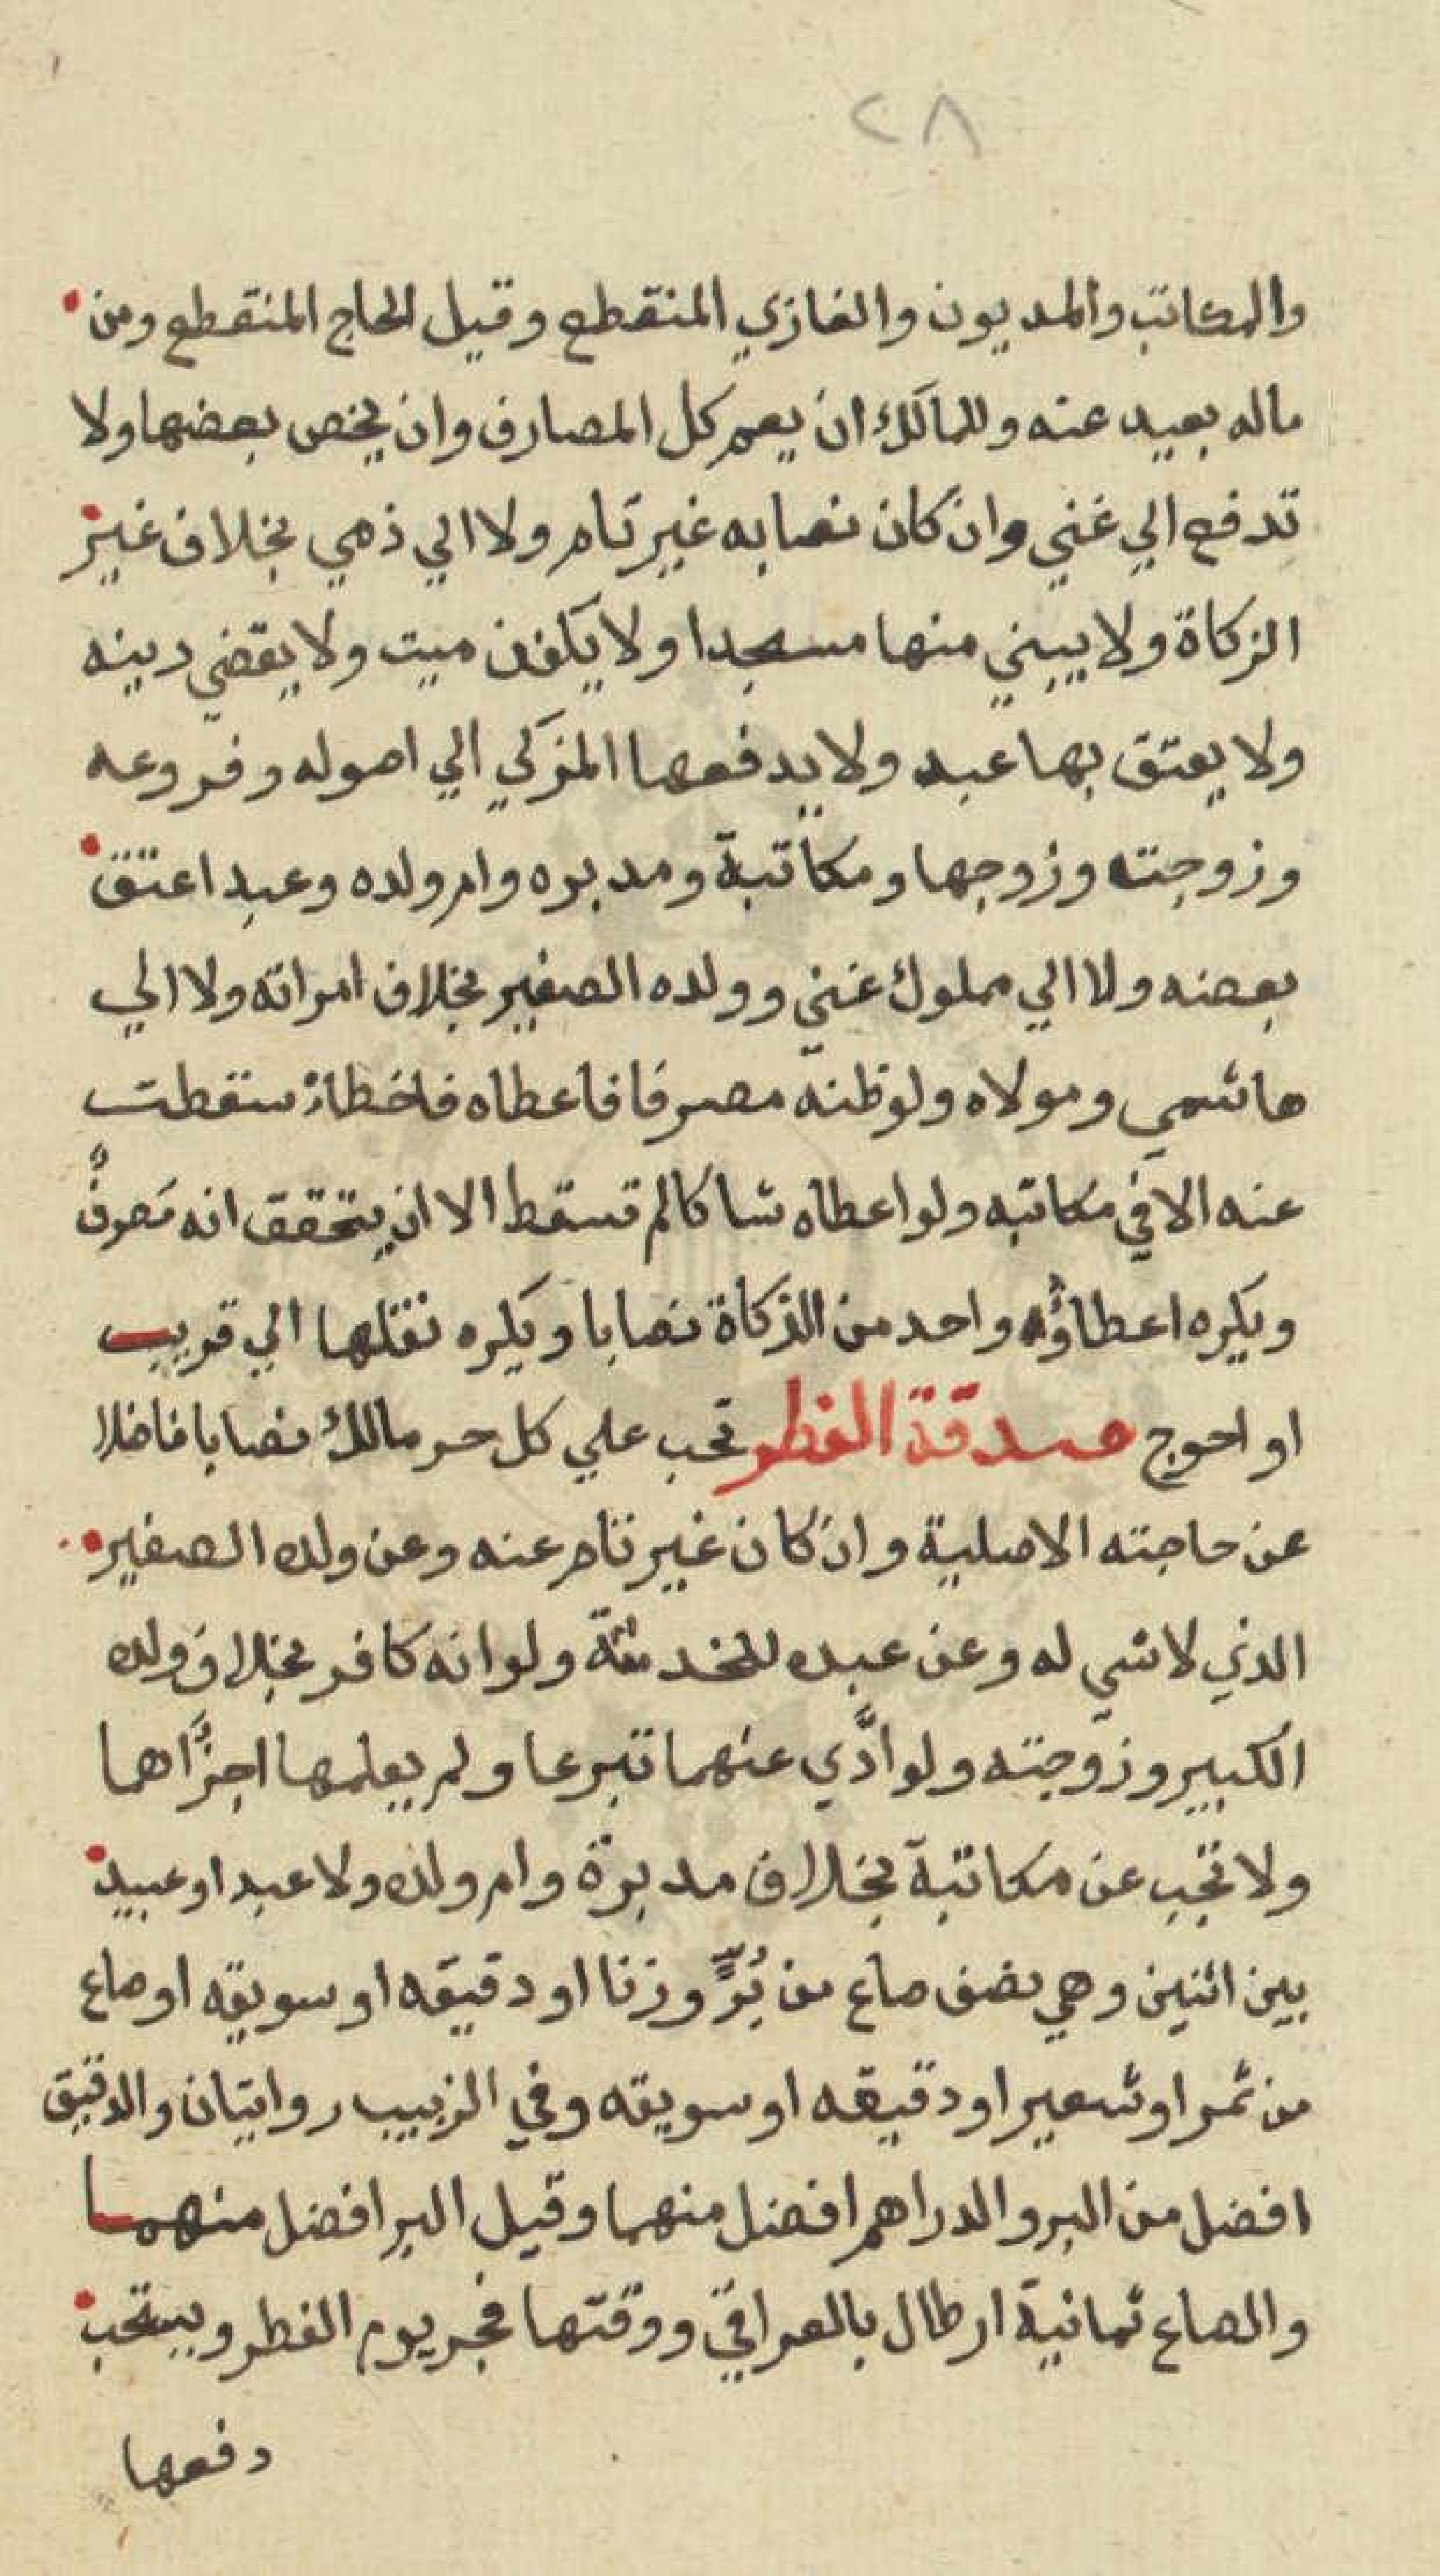 ٢٨
والمكاتب والمديون والغازي المنقطع وقيل الحاج المنقطع ومن
ماله بعيد عنه وللمالك ان يعم كل المصارف وان يخص بعضها ولا
تدفع الي غني وان كان نصابه غير تام ولا الي ذمي بخلاف غير
الزكاة ولا يبني منها مسجدا ولا يكفن ميت ولا يقضي دينه
ولا يعتق بها عبد ولا يدفعها المزكي الي اصوله وفروعه
وزوجته وزوجها ومكاتبة ومدبره وام ولده وعبد اعتق
بعضه ولا الي مملوك غني وولده الصغير بخلاف امراته ولا الي
هاشمي ومولاه ولو ظنه مصرفا فاعطاه فاخطاء سقطت
عنه الا في مكاتبه ولو اعطاه شاكا لم تسقط الا ان يتحقق انه مصرفٌ
ويكره اعطاؤه واحد من الزكاة نصابا ويكره نقلها الي قريب
او احوج صدقة الفطر تجب علي كل حر مالك نصابا فاضلا
عن حاجته الاصلية وان كان غير تام عنه وعن ولده الصغير
الذي لا شي له وعن عبده للخدمة ولو انه كافر بخلاف ولده
الكبير وزوجته ولو ادَّي عنهما تبرعا ولم يعلمها اجزَّاهما
ولا تجب عن مكاتبة بخلاف مدبرة وام ولده ولا عبد او عبيد
بين اثنين وهي نصف صاع من بُرٍّ وزنا او دقيقه او سويقه او صاع
من تمر او شعير او دقيقه او سويقه وفي الزبيب روايتان والدقيق
افضل من البر والدراهم افضل منهما وقيل البر افضل منهما
والصاع ثمانية ارطال بالعراقي ووقتها فجر يوم الفطر ويستحب
دفعها